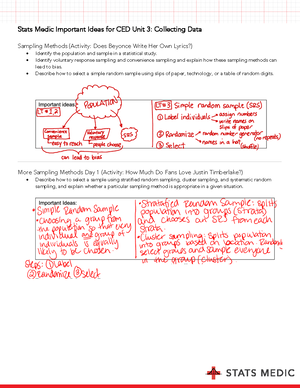 Stats Medic Important Ideas for CED Unit 3: Collecting Data
Sampling Methods (Activity: Does Beyonce Write Her Own Lyrics?)
• Identify the population and sample in a statistical study.
• Identify voluntary response sampling and convenience sampling and explain how these sampling methods can
lead to bias.
• Describe how to select a simple random sample using slips of paper, technology, or a table of random digits.
Important ideas:
LT#1,2
POPULATION
Convenience
sample
Voluntary
response
SRS
easy to reach
people choose
can lead to bias
LT#3 Simple random sample (SRS)
① Label individuals
assign numbers
write names on
slips of paper
② Randomize
random number generator
(no repeats)
names in a hat
(shuffle)
③ Select
More Sampling Methods Day 1 (Activity: How Much Do Fans Love Justin Timberlake?)
• Describe how to select a sample using stratified random sampling, cluster sampling, and systematic random
sampling, and explain whether a particular sampling method is appropriate in a given situation.
Important Ideas:
• Simple Random Sample
• Choosing a group from
the population so that every
individual and group of
individuals is equally
likely to be chosen
Steps: ① Label
② Randomize ③ Select
• Stratified Random Sample: splits
population into groups (strata)
and chooses an SRS from each
strata.
• Cluster sampling: splits population
into groups based on location. Randomly
select groups and sample everyone
in the group (cluster)
STATS MEDIC